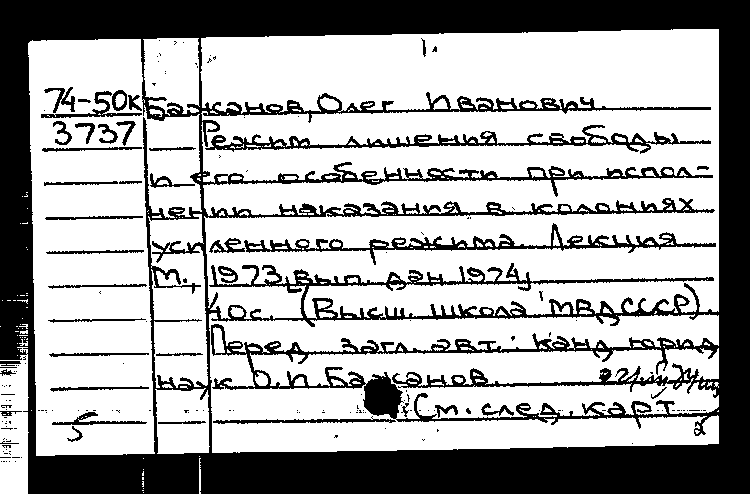 1.
74-50к Бажанов, Олег Иванович.
3737 Режим лишения свободы
и его особенности при испол-
нении наказания в колониях
усиленного режима. Лекция
М., 1973, [вып. дан. 1974]
40с. (Высш. школа МВД СССР).
Перед загл. авт.: канд. юрид.
наук О.И. Бажанов.
См. след. карт
5 2